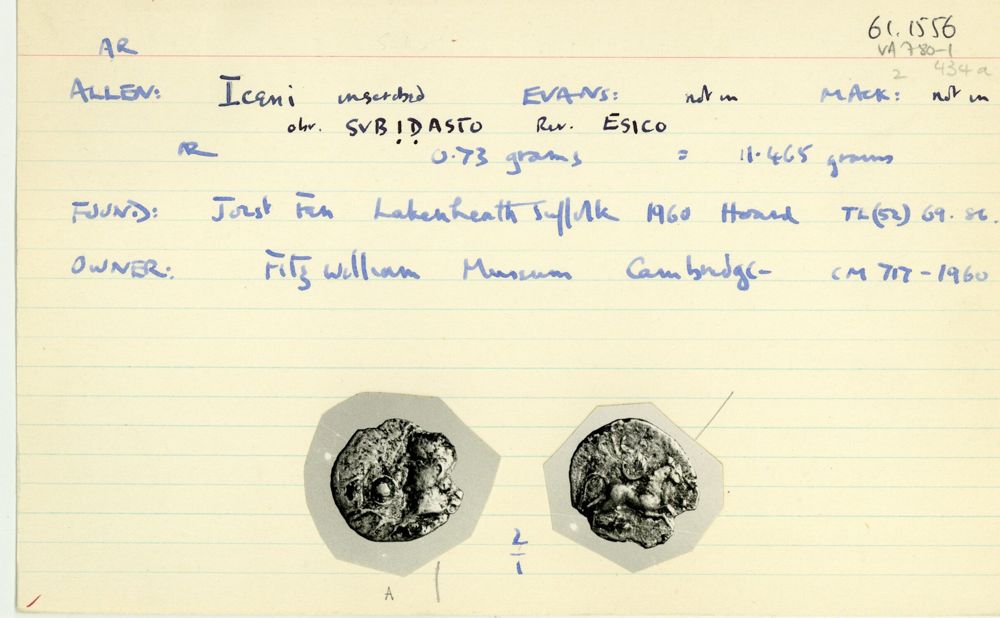 61.1556
AR
VA 780-1
2 434a
ALLEN: Iceni inscribed EVANS: not in MACK: not in
obv. SVBỊḌASTO Rev. ESICO
AR 0.73 grams = 11.465 grains
FOUND: Joist Fen Lakenheath Suffolk 1960 Hoard TL(52) 69. 86.
OWNER: Fitzwilliam Museum Cambridge CM 717-1960
2
1
A